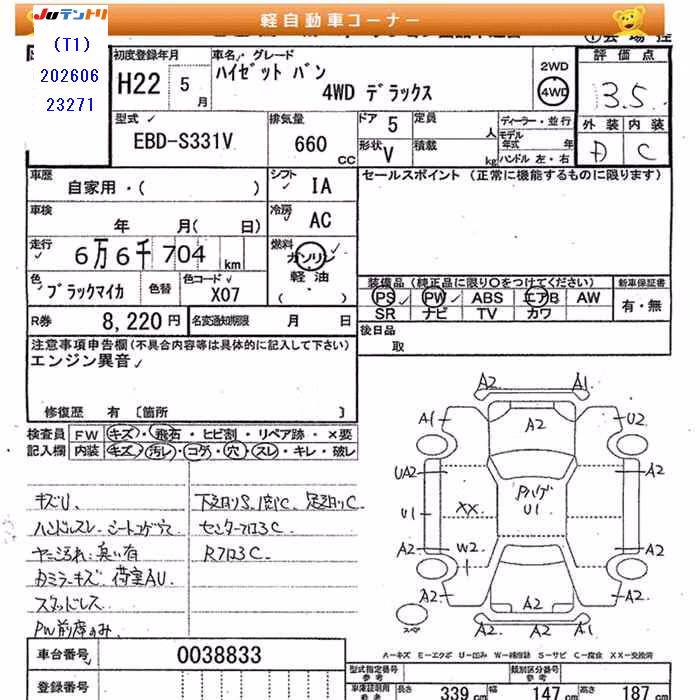 Juテントリ
軽自動車コーナー
(T1)
202606
23271
初度登録年月 H22 5月
車名・グレード ハイゼット バン
4WD デラックス
2WD
4WD
評価点
3.5
外装 内装
D C
型式 EBD-S331V
排気量 660 CC
ドア 5
形状 V
定員 人
積載 kg
ディーラー・並行
モデル年式 年
ハンドル 左・右
車歴 自家用・( )
シフト IA
セールスポイント (正常に機能するものに限ります)
車検 年 月( 日)
冷房 AC
走行 6万6千704 km
燃料 ガソリン
軽油
( ・ )
色 ブラックマイカ 色替
色コード X07
装備品 (純正品に限り○をつけてください) 新車保証書
PS PW ABS エアB AW
SR ナビ TV カワ
有・無
R券 8,220円 名変通知期限 月 日
後日品
取
注意事項申告欄(不具合内容等は具体的に記入して下さい)
エンジン異音
修復歴 有 〔箇所 〕
検査員記入欄
FW キズ・飛石・ヒビ割・リペア跡・×要
内装 キズ・汚レ・コゲ・穴・スレ・キレ・破レ
キズU、
下廻りS、腐C、足廻りC
ハンドルスレ シートコゲ穴
センターフロアC
ヤニ汚れ・臭い有
RフロアC
カミラーキズ 荷室AU
スタッドレス
PW前席のみ
A2 A1
A1 A2 U2
UA2 A2
U1 XX PハゲU1
A2 W2 A2
A2 A2 A2
A2 A2 A2
スペア
A-キズ E-エクボ U-凹み W-補修跡 S-サビ C-腐食 XX-交換済
車台番号 0038833
登録番号
型式指定番号 参考
類別区分番号 参考
車庫証明用 参考 長さ 339 cm 幅 147 cm 高さ 187 cm